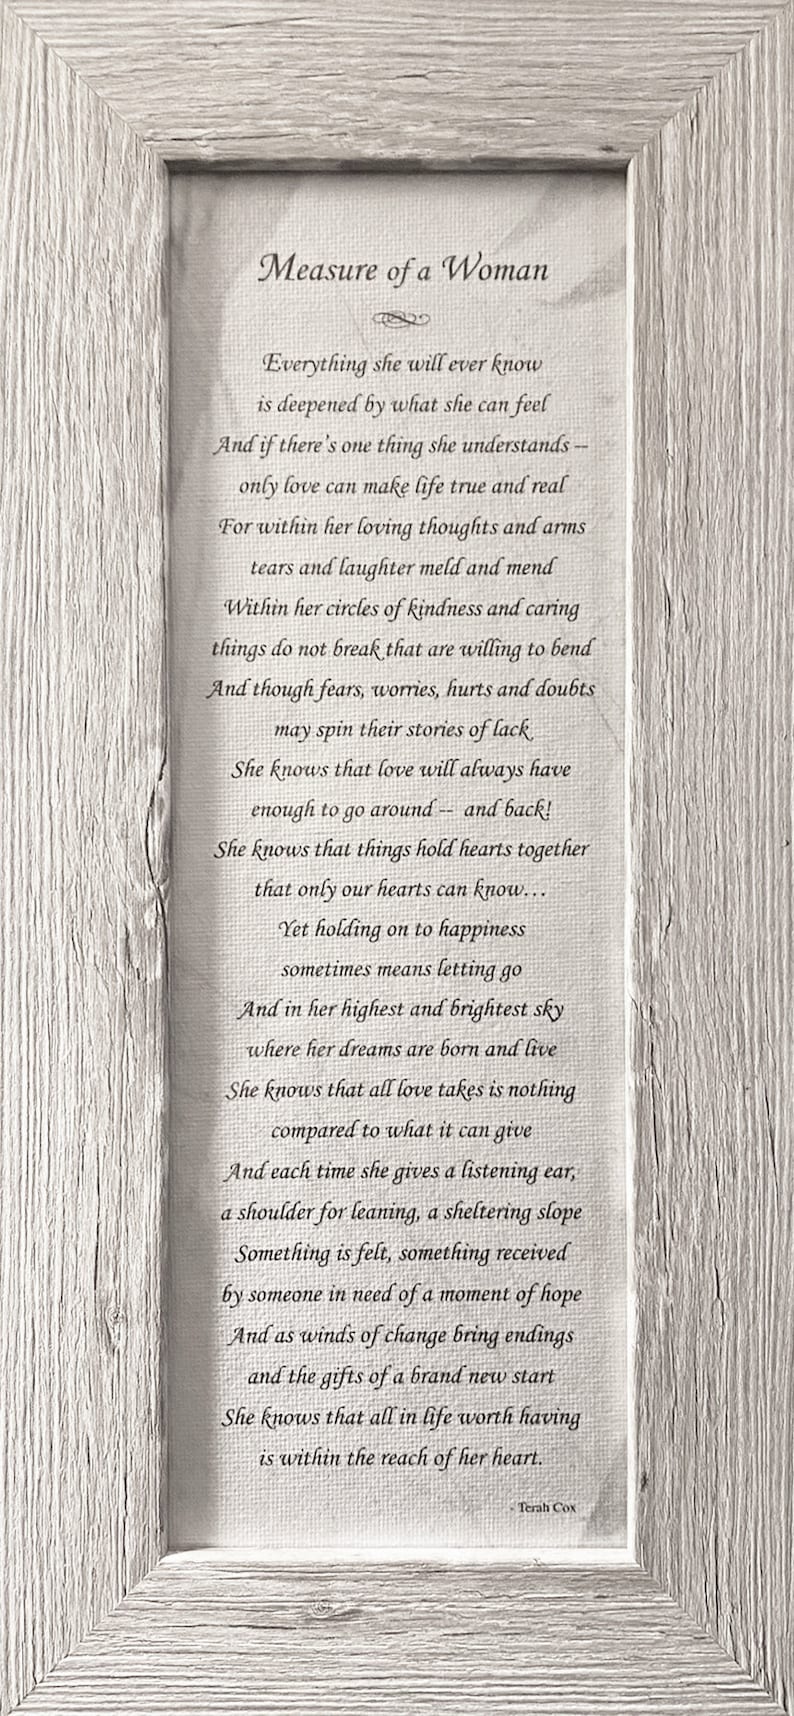 Measure of a Woman
Everything she will ever know
is deepened by what she can feel
And if there's one thing she understands --
only love can make life true and real
For within her loving thoughts and arms
tears and laughter meld and mend
Within her circles of kindness and caring
things do not break that are willing to bend
And though fears, worries, hurts and doubts
may spin their stories of lack
She knows that love will always have
enough to go around -- and back!
She knows that things hold hearts together
that only our hearts can know...
Yet holding on to happiness
sometimes means letting go
And in her highest and brightest sky
where her dreams are born and live
She knows that all love takes is nothing
compared to what it can give
And each time she gives a listening ear,
a shoulder for leaning, a sheltering slope
Something is felt, something received
by someone in need of a moment of hope
And as winds of change bring endings
and the gifts of a brand new start
She knows that all in life worth having
is within the reach of her heart.
- Terah Cox